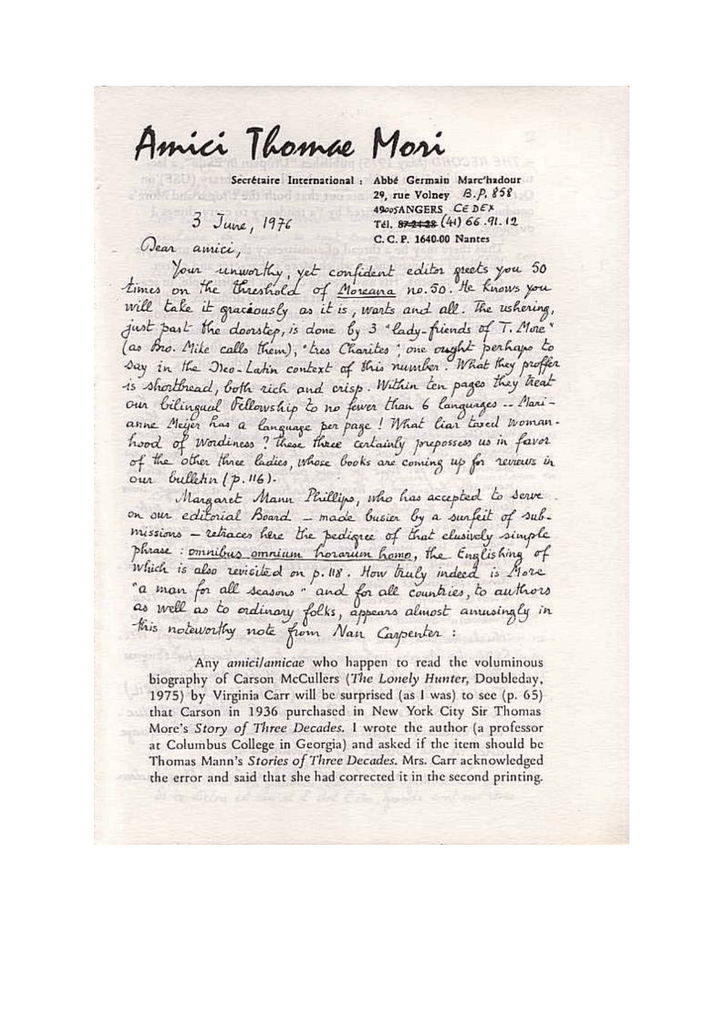 Amici Thomae Mori
Secrétaire International : Abbé Germain Marc'hadour
29, rue Volney B.P. 858
49005 ANGERS CEDEX
Tél. 87-24-28 (41) 66.91.12
C. C. P. 1640-00 Nantes
3 June, 1976
Dear amici,
Your unworthy, yet confident editor greets you 50
times on the threshold of Moreana no. 50. He knows you
will take it graciously as it is, warts and all. The ushering,
just past the doorstep, is done by 3 "lady-friends of T. More"
(as Bro. Mike calls them), "tres Charites", one ought perhaps to
say in the Neo-Latin context of this number. What they proffer
is shortbread, both rich and crisp. Within ten pages they treat
our bilingual Fellowship to no fewer than 6 languages -- Mari-
anne Meijer has a language per page ! What liar taxed woman-
hood of wordiness ? These three certainly prepossess us in favor
of the other three ladies, whose books are coming up for reviews in
our bulletin (p. 116).
Margaret Mann Phillips, who has accepted to serve
on our editorial Board – made busier by a surfeit of sub-
missions – retraces here the pedigree of that elusively simple
phrase : omnibus omnium horarum homo, the Englishing of
which is also revisited on p. 118. How truly indeed is More
"a man for all seasons" and for all countries, to authors
as well as to ordinary folks, appears almost amusingly in
this noteworthy note from Nan Carpenter :
Any amici/amicae who happen to read the voluminous
biography of Carson McCullers (The Lonely Hunter, Doubleday,
1975) by Virginia Carr will be surprised (as I was) to see (p. 65)
that Carson in 1936 purchased in New York City Sir Thomas
More's Story of Three Decades. I wrote the author (a professor
at Columbus College in Georgia) and asked if the item should be
Thomas Mann's Stories of Three Decades. Mrs. Carr acknowledged
the error and said that she had corrected it in the second printing.